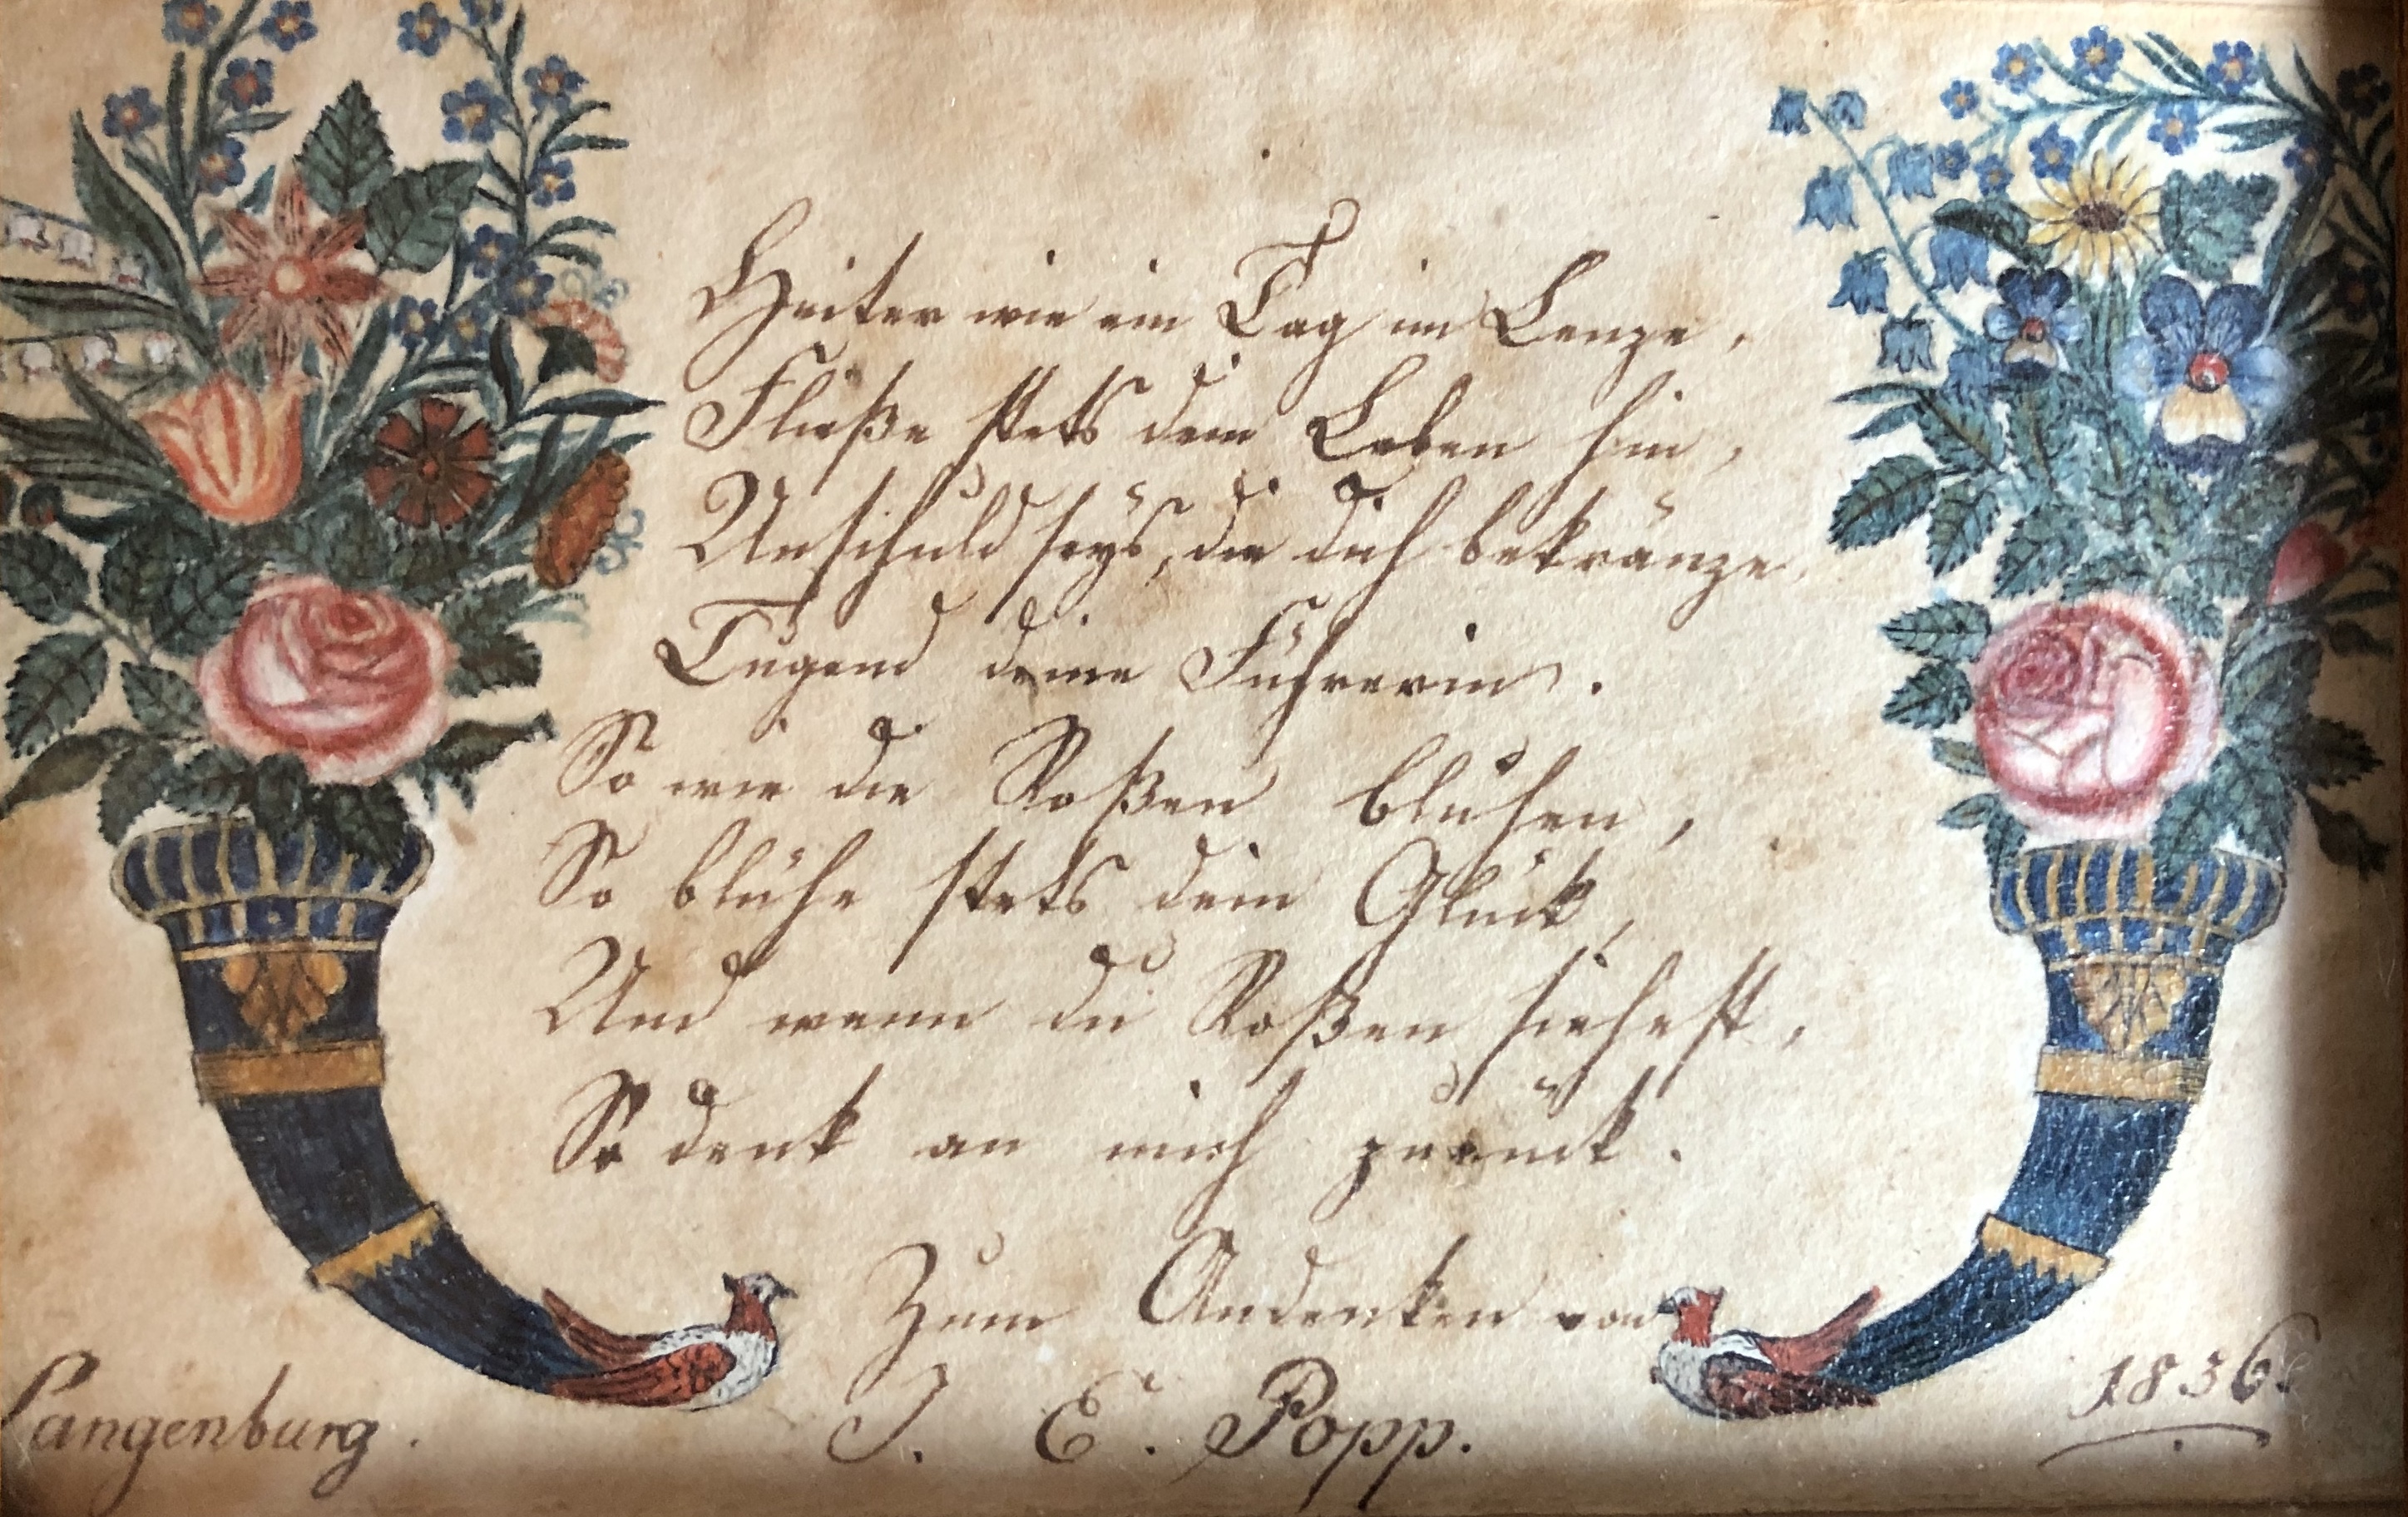 Heiter wie ein Tag im Lenze,
Fließe stets dein Leben hin,
Unschuld seÿs, die dich bekränze,
Tugend deine Führerin.
So wie die Roßen bluhen,
So blühe stets dein Glück,
Und wenn du Roßen siehest,
So denk an mich zurück.
Zum Andenken von
J. E. Popp.
Langenburg.
1836